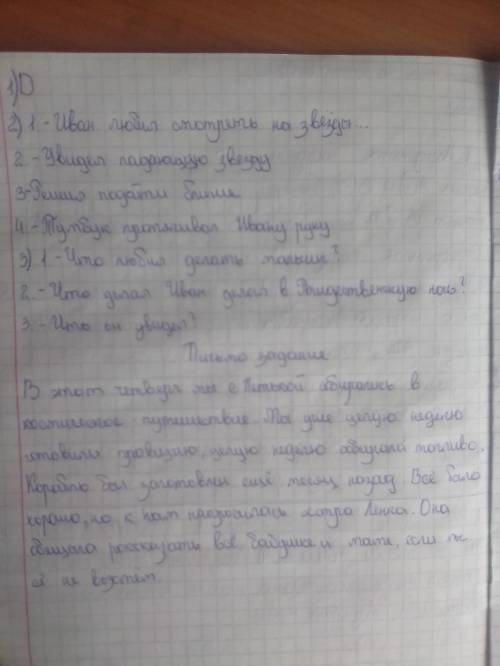 1) D
2) 1.- Иван любил смотреть на звёзды...
2.- Увидел падающую звезду
3- Решил подойти ближе
4.- Тумбук протягивал Ивану руку
3) 1.- Что любил делать мальчик?
2.- Что делал Иван делал в Рождественскую ночь?
3.- Что он увидел?
Письмо задание
В этот четверг мы с Петькой собирались в
космическое путешествие. Мы уже целую неделю
готовили провизию, целую неделю собирали топливо.
Корабль был заготовлен ещё месяц назад. Всё было
хорошо, но к нам напросилась сестра Ленка. Она
обещала рассказать всё бабушке и маме, если мы
её не возьмём.